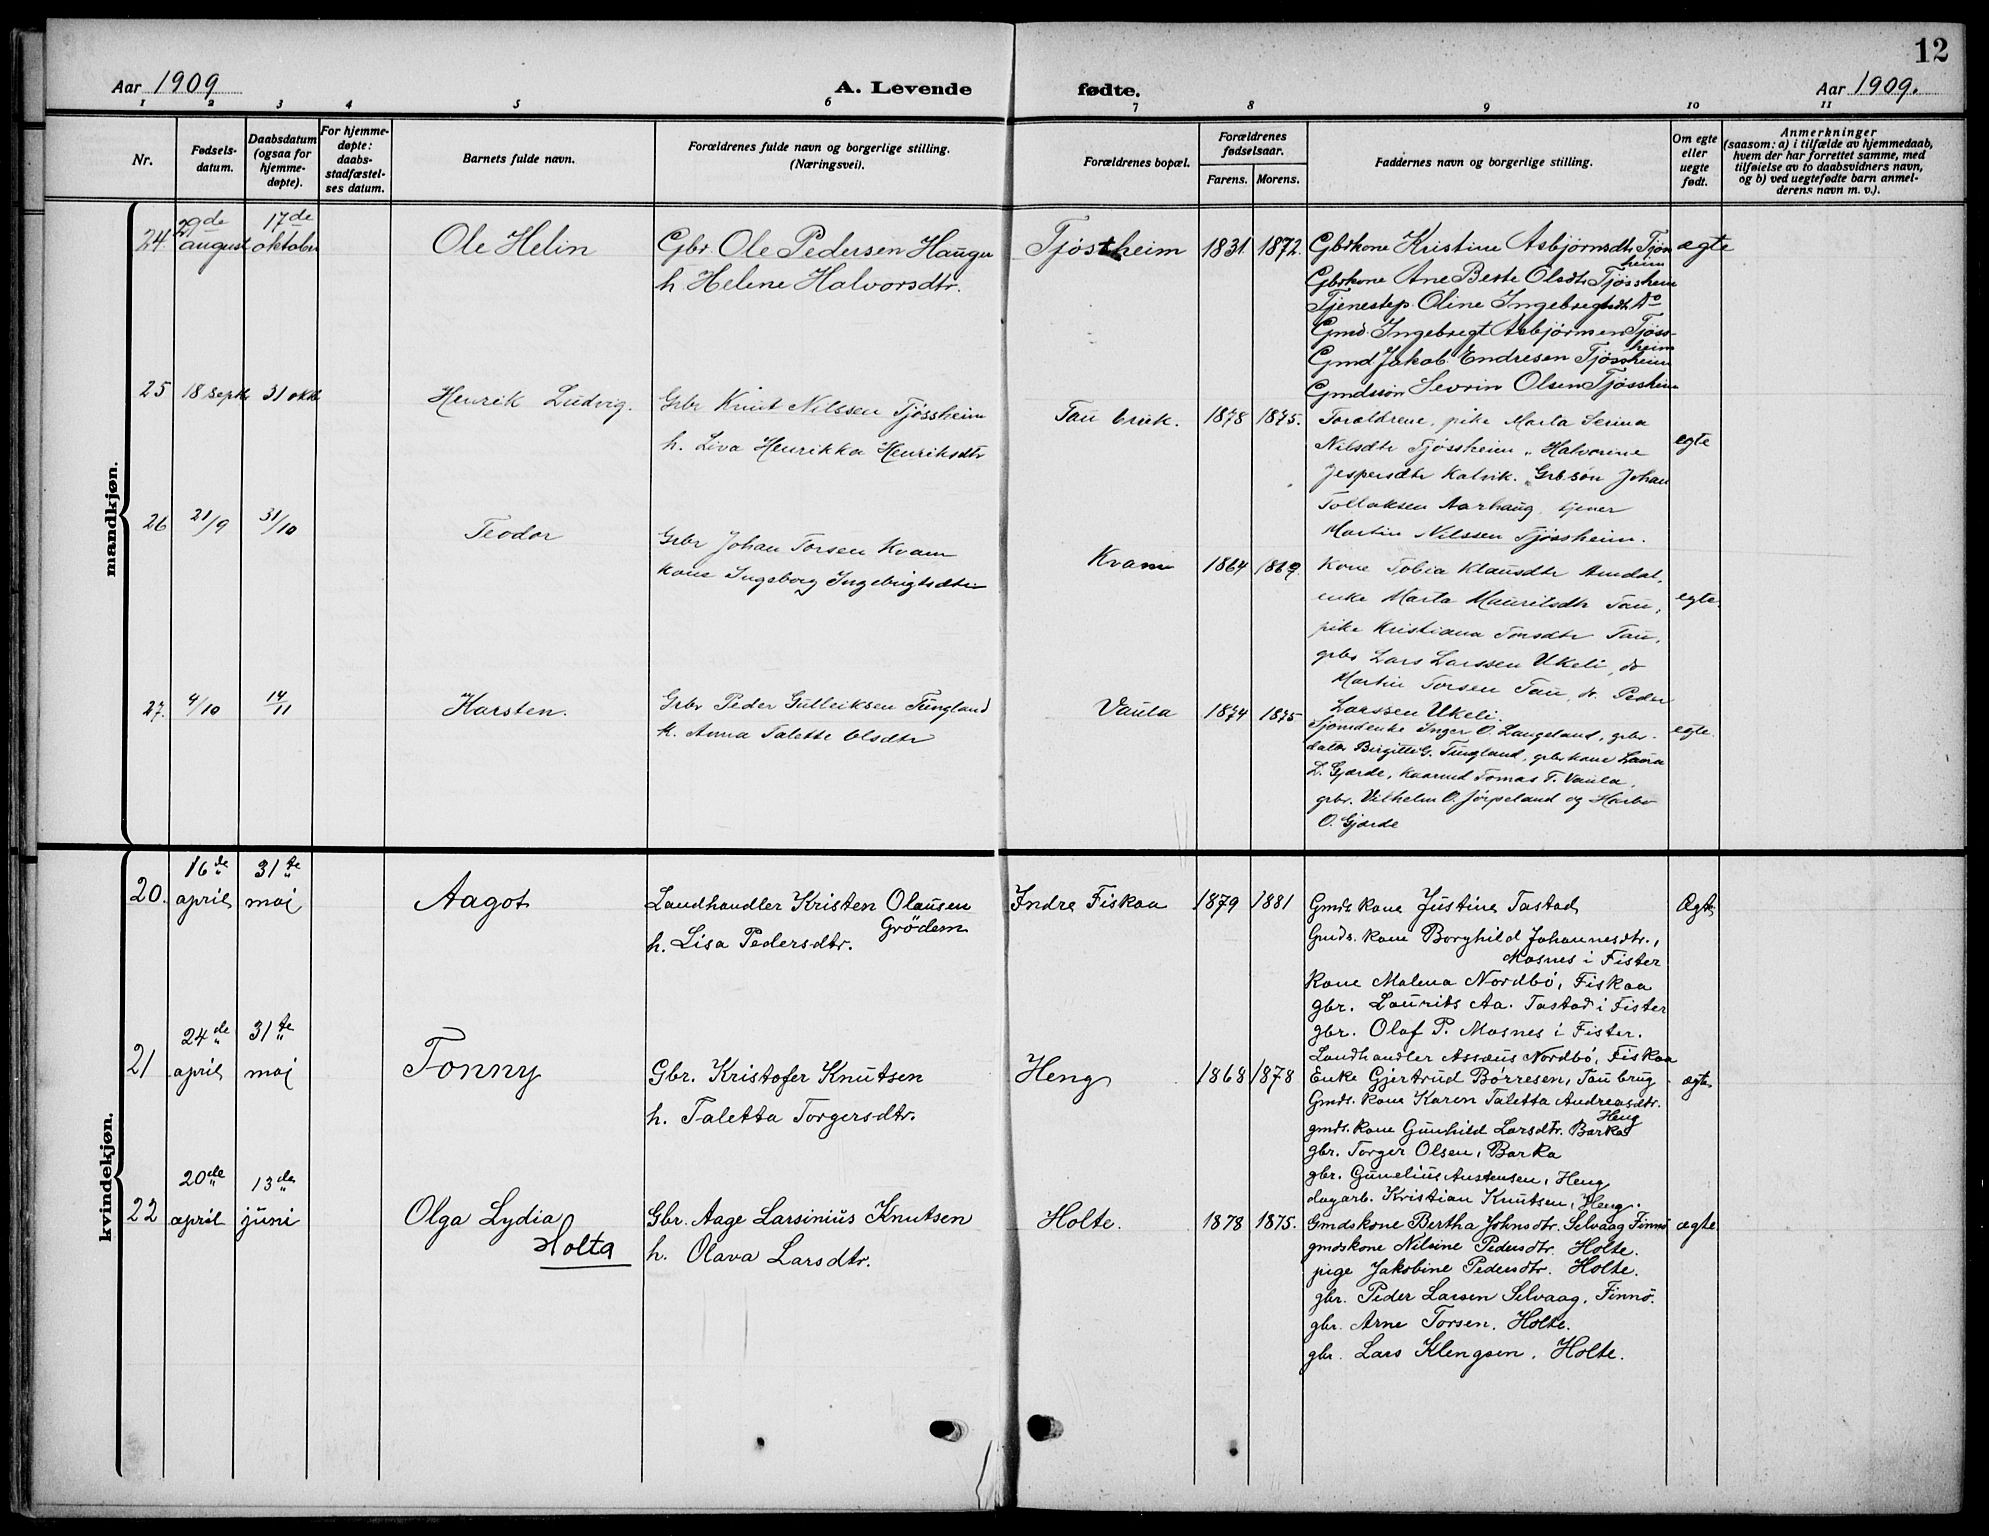 12
Aar 1909
A. Levende fødte.
Aar 1909.
1 2 3 4 5 6 7 8 9 10 11
Nr.
Fødsels-
datum.
Daabsdatum
(ogsaa for
hjemme-
døpte).
For hjemme-
døpte:
daabs-
stadfæstel-
ses datum.
Barnets fulde navn.
Forældrenes fulde navn og borgerlige stilling.
(Næringsvei).
Forældrenes bopæl.
Forældrenes
fødselsaar.
Farens. Morens.
Faddernes navn og borgerlige stilling.
Om egte
eller
uegte
født.
Anmerkninger
(saasom: a) i tilfælde av hjemmedaab,
hvem der har forrettet samme, med
tilføielse av to daabsvidners navn,
og b) ved uegtefødte barn anmel-
derens navn m. v.).
mandkjøn.
24.
29de
august
17de
oktober
Ole Helin
Gbr. Ole Pedersen Haugen
h. Helene Halvorsdtr.
Tjøstheim
1831. 1872.
Gbrkone Kristine Asbjørnsdtr Tjøs
heim
Gbrkone Ane Berte Olsdtr Tjøssheim
Tjenestep. Oline Ingebregtsdtr Do
Gmd. Ingebregt Asbjørnsen Tjøss-
heim
Gmd Jakob Endresen Tjøssheim
Gmdssøn Sevrin Olsen Tjøssheim
ægte
25
18 septb
31 oktb
Henrik Ludvig.
Grbr Knut Nilssen Tjøssheim
h. Liva Henrikka Henriksdtr
Tau bruk.
1878 1875.
Foreldrene, pike Marta Serina
Nilsdtr Tjøssheim, Halvorine
Jespersdtr Kalvik. Grb.søn Johan
Tollaksen Aarhaug, tjener
Martin Nilssen Tjøssheim.
egte
26
21/9
31/10
Teodor
Grbr Johan Torsen Kvam
kone Ingeborg Ingebrigtsdtr
Kvam
1864 1869.
Kone Tobia Klausdtr Amdal,
enke Marta Mauritsdtr Tau,
pike Kristiana Torsdtr Tau,
grbr Lars Larssen Ukeli, do
Martin Torsen Tau, do. Peder
Larssen Ukeli.
egte.
27.
4/10
14/11
Karsten.
Grbr Peder Gulleiksen Tungland
k. Anna Talette Olsdtr
Vaula
1874 1875
Sjømdenke Inger O. Langeland, grbr.
datter Birgitte G. Tungland, grbr kone Laura
L. Gjerde, kaarmd Tomas T. Vaula,
grbr. Vilhelm O. Jørpeland og
O. Gjerde
egte.
kvindekjøn.
20.
16de
april
31te
maj
Aagot
Landhandler Kristen Olausen
Grödem
h. Lisa Pedersdtr.
Indre Fiskaa
1879 1881
Gmds. kone Justine Tastad
Gmds. kone Borghild Johannesdtr.,
Mosnes i Fister
Kone Malena Nordbö, Fiskaa
gbr. Laurits Aa. Tastad i Fister
gbr. Olaf P. Mosnes i Fister.
Landhandler Assæus Nordbö, Fiskaa
Ægte
21
24de
april
31te
maj
Tonny
Gbr. Kristofer Knutsen
h. Taletta Torgersdtr.
Heng
1868 1878
Enke Gjertrud Börresen, Tau brug
Gmds. kone Karen Taletta Andreasdtr.
Heng
gmds. kone Gunhild Larsdtr. Barka
gbr. Torger Olsen, Barka
gbr. Gunelius Austensen, Heng
dagarb. Kristian Knutsen, Heng.
ægte
22
20de
april
13de
juni
Olga Lydia
Holta
Gbr. Aage Larsinius Knutsen
h. Olava Larsdtr.
Holte.
1878 1875.
Gmdskone Bertha Johnsdtr. Selvaag Finnö
gmdskone Nilsine Pedersdtr. Holte.
pige Jakobine Pedersdtr. Holte.
gbr. Peder Larsen Selvaag, Finnö.
gbr. Arne Torsen, Holte.
gbr. Lars Klengsen, Holte.
ægte